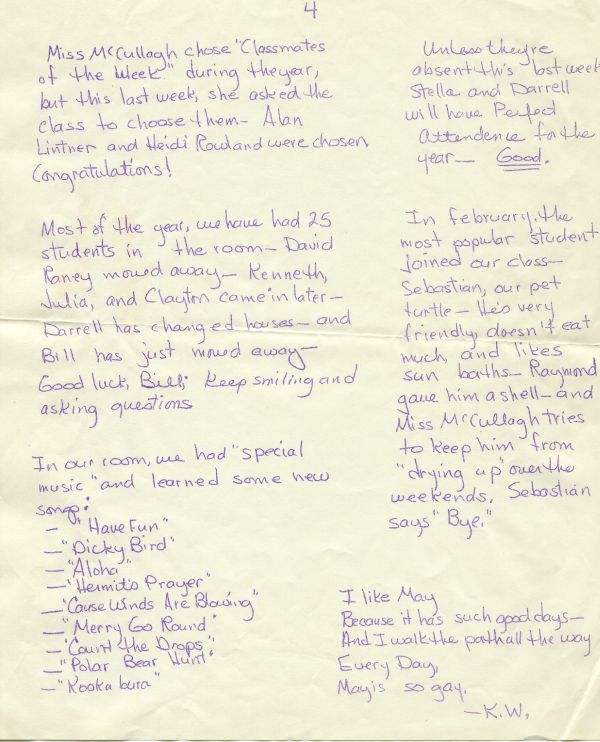 4
Miss McCullagh chose "Classmates
of the Week" during the year,
but this last week, she asked the
class to choose them— Alan
Lintner and Heidi Rowland were chosen
Congratulations!
Most of the year, we have had 25
students in the room— David
Raney moved away— Kenneth,
Julia, and Clayton came in later—
Darrell has changed houses— and
Bill has just moved away—
Good luck, Bill; keep smiling and
asking questions
In our room, we had "special
music" and learned some new
songs:
— "Have Fun"
— "Dicky Bird"
— "Aloha"
— "Hermit's Prayer"
— "Cause Winds Are Blowing"
— "Merry Go Round"
— "Count the Drops"
— "Polar Bear Hunt"
— "Kooka bura"
Unless they're
absent this last week
Stella and Darrell
will have Perfect
Attendence for the
year— Good.
In February, the
most popular student
joined our class—
Sebastian, our pet
turtle— He's very
friendly, doesn't eat
much, and likes
sun baths— Raymond
gave him a shell— and
Miss McCullagh tries
to keep him from
"drying up" over the
weekends. Sebastian
says "Bye."
I like May
Because it has such good days—
And I walk the path all the way
Every Day,
May is so gay.
—K.W.